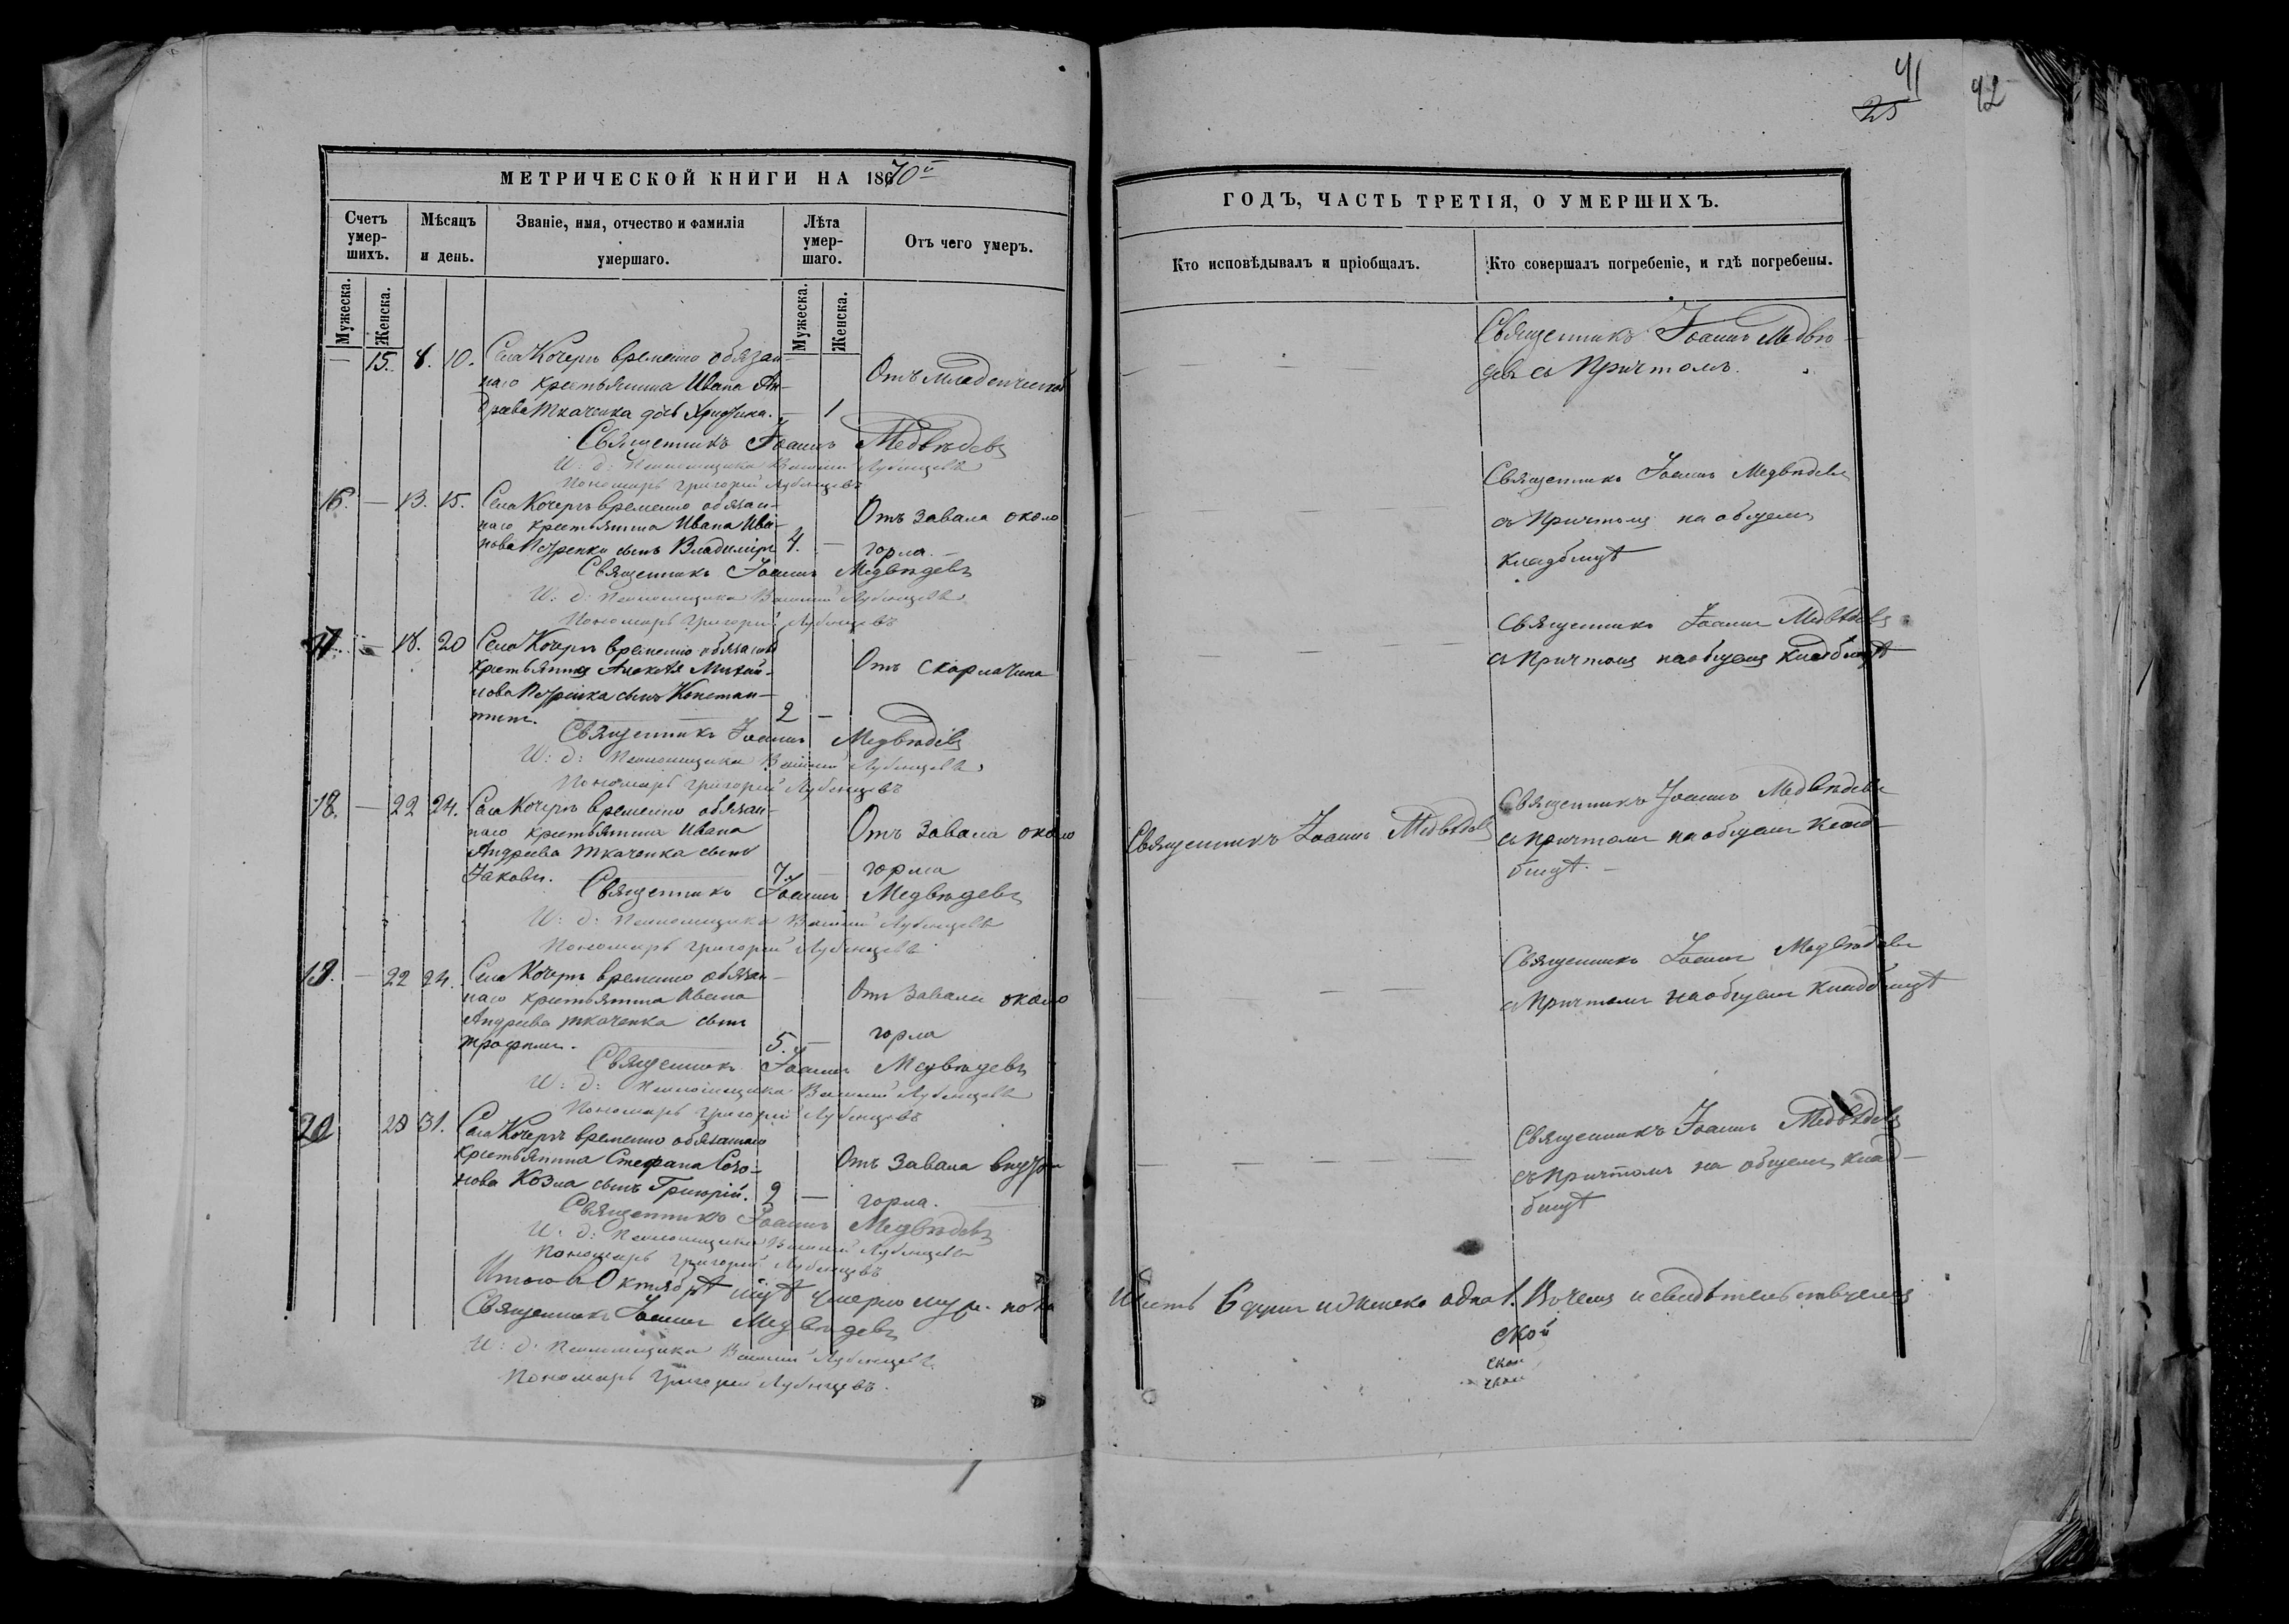 41
25
42
МЕТРИЧЕСКОЙ КНИГИ НА 1870й
Счетъ умер-шихъ.
Мѣсяцъ и день.
Званіе, имя, отчество и фамилія умершаго.
Лѣта умер-шаго.
Отъ чего умеръ.
Мужеска.
Женска.
Мужеска.
Женска.
— 15. 8. 10. Села Кочеръ временно обязан-
наго крестьянина Ивана Ан-
дреева Ткаченка дочь — 1
Отъ младенческой
Священникъ Іоаннъ Медвѣдевъ
И: д: Псаломщика Василій Лубенцевъ
Пономарь Григорій Лубенцевъ
16. — 13. 15. Села Кочеръ временно обязан-
наго крестьянина Ивана Ива-
нова сынъ Владиміръ 4. —
Отъ завала около
горла. —
Священникъ Іоаннъ Медвѣдевъ
И: д: Псаломщика Василій Лубенцевъ
Пономарь Григорій Лубенцевъ
17. — 18. 20 Села Кочеръ временно обязаннаго
крестьянина Алексѣя Михай-
лова сынъ Констан-
тинъ. 2 —
Отъ скарлатина
Священникъ Іоаннъ Медвѣдевъ
И: д: Псаломщика Василій Лубенцевъ
Пономарь Григорій Лубенцевъ
18. — 22 24. Села Кочеръ временно обязан-
наго крестьянина Ивана
Андреева Ткаченка сынъ
Іаковъ. 7. —
Отъ завала около
горла
Священникъ Іоаннъ Медвѣдевъ
И: д: Псаломщика Василій Лубенцевъ
Пономарь Григорій Лубенцевъ
19. — 22 24. Села Кочеръ временно обязан-
наго крестьянина Ивана
Андреева Ткаченка сынъ
Трофимъ. 5. —
Отъ завала около
горла
Священникъ Іоаннъ Медвѣдевъ
И: д: Псаломщика Василій Лубенцевъ
Пономарь Григорій Лубенцевъ
20 31. Села Кочеръ временно обязаннаго
крестьянина Стефана
Козла сынъ Григорій. 2 —
Отъ завала внутри
горла.
Священникъ Іоаннъ Медвѣдевъ
И: д: Псаломщика Василій Лубенцевъ
Пономарь Григорій Лубенцевъ
Итого въ Октябрѣ умерло муж. пола
Священникъ Іоаннъ Медвѣдевъ
И: д: Псаломщика Василій Лубенцевъ
Пономарь Григорій Лубенцевъ.
ГОДЪ, ЧАСТЬ ТРЕТІЯ, О УМЕРШИХЪ.
Кто исповѣдывалъ и пріобщалъ.
Кто совершалъ погребеніе, и гдѣ погребены.
Священникъ Іоаннъ Медвѣ-
девъ съ Причтомъ.
Священникъ Іоаннъ Медвѣдевъ
съ Причтомъ на общемъ
кладбищѣ
Священникъ Іоаннъ Медвѣдевъ
съ Причтомъ на общемъ кладбищѣ
Священникъ Іоаннъ Медвѣдевъ
Священникъ Іоаннъ Медвѣдевъ
съ причтомъ на общемъ клад-
бищѣ. —
Священникъ Іоаннъ Медвѣдевъ
съ Причтомъ на общемъ кладбищѣ
Священникъ Іоаннъ Медвѣдевъ
съ причтомъ на общемъ клад-
бищѣ
шесть 6 душъ и женска одна 1. В чемъ и свидѣтельствуемъ